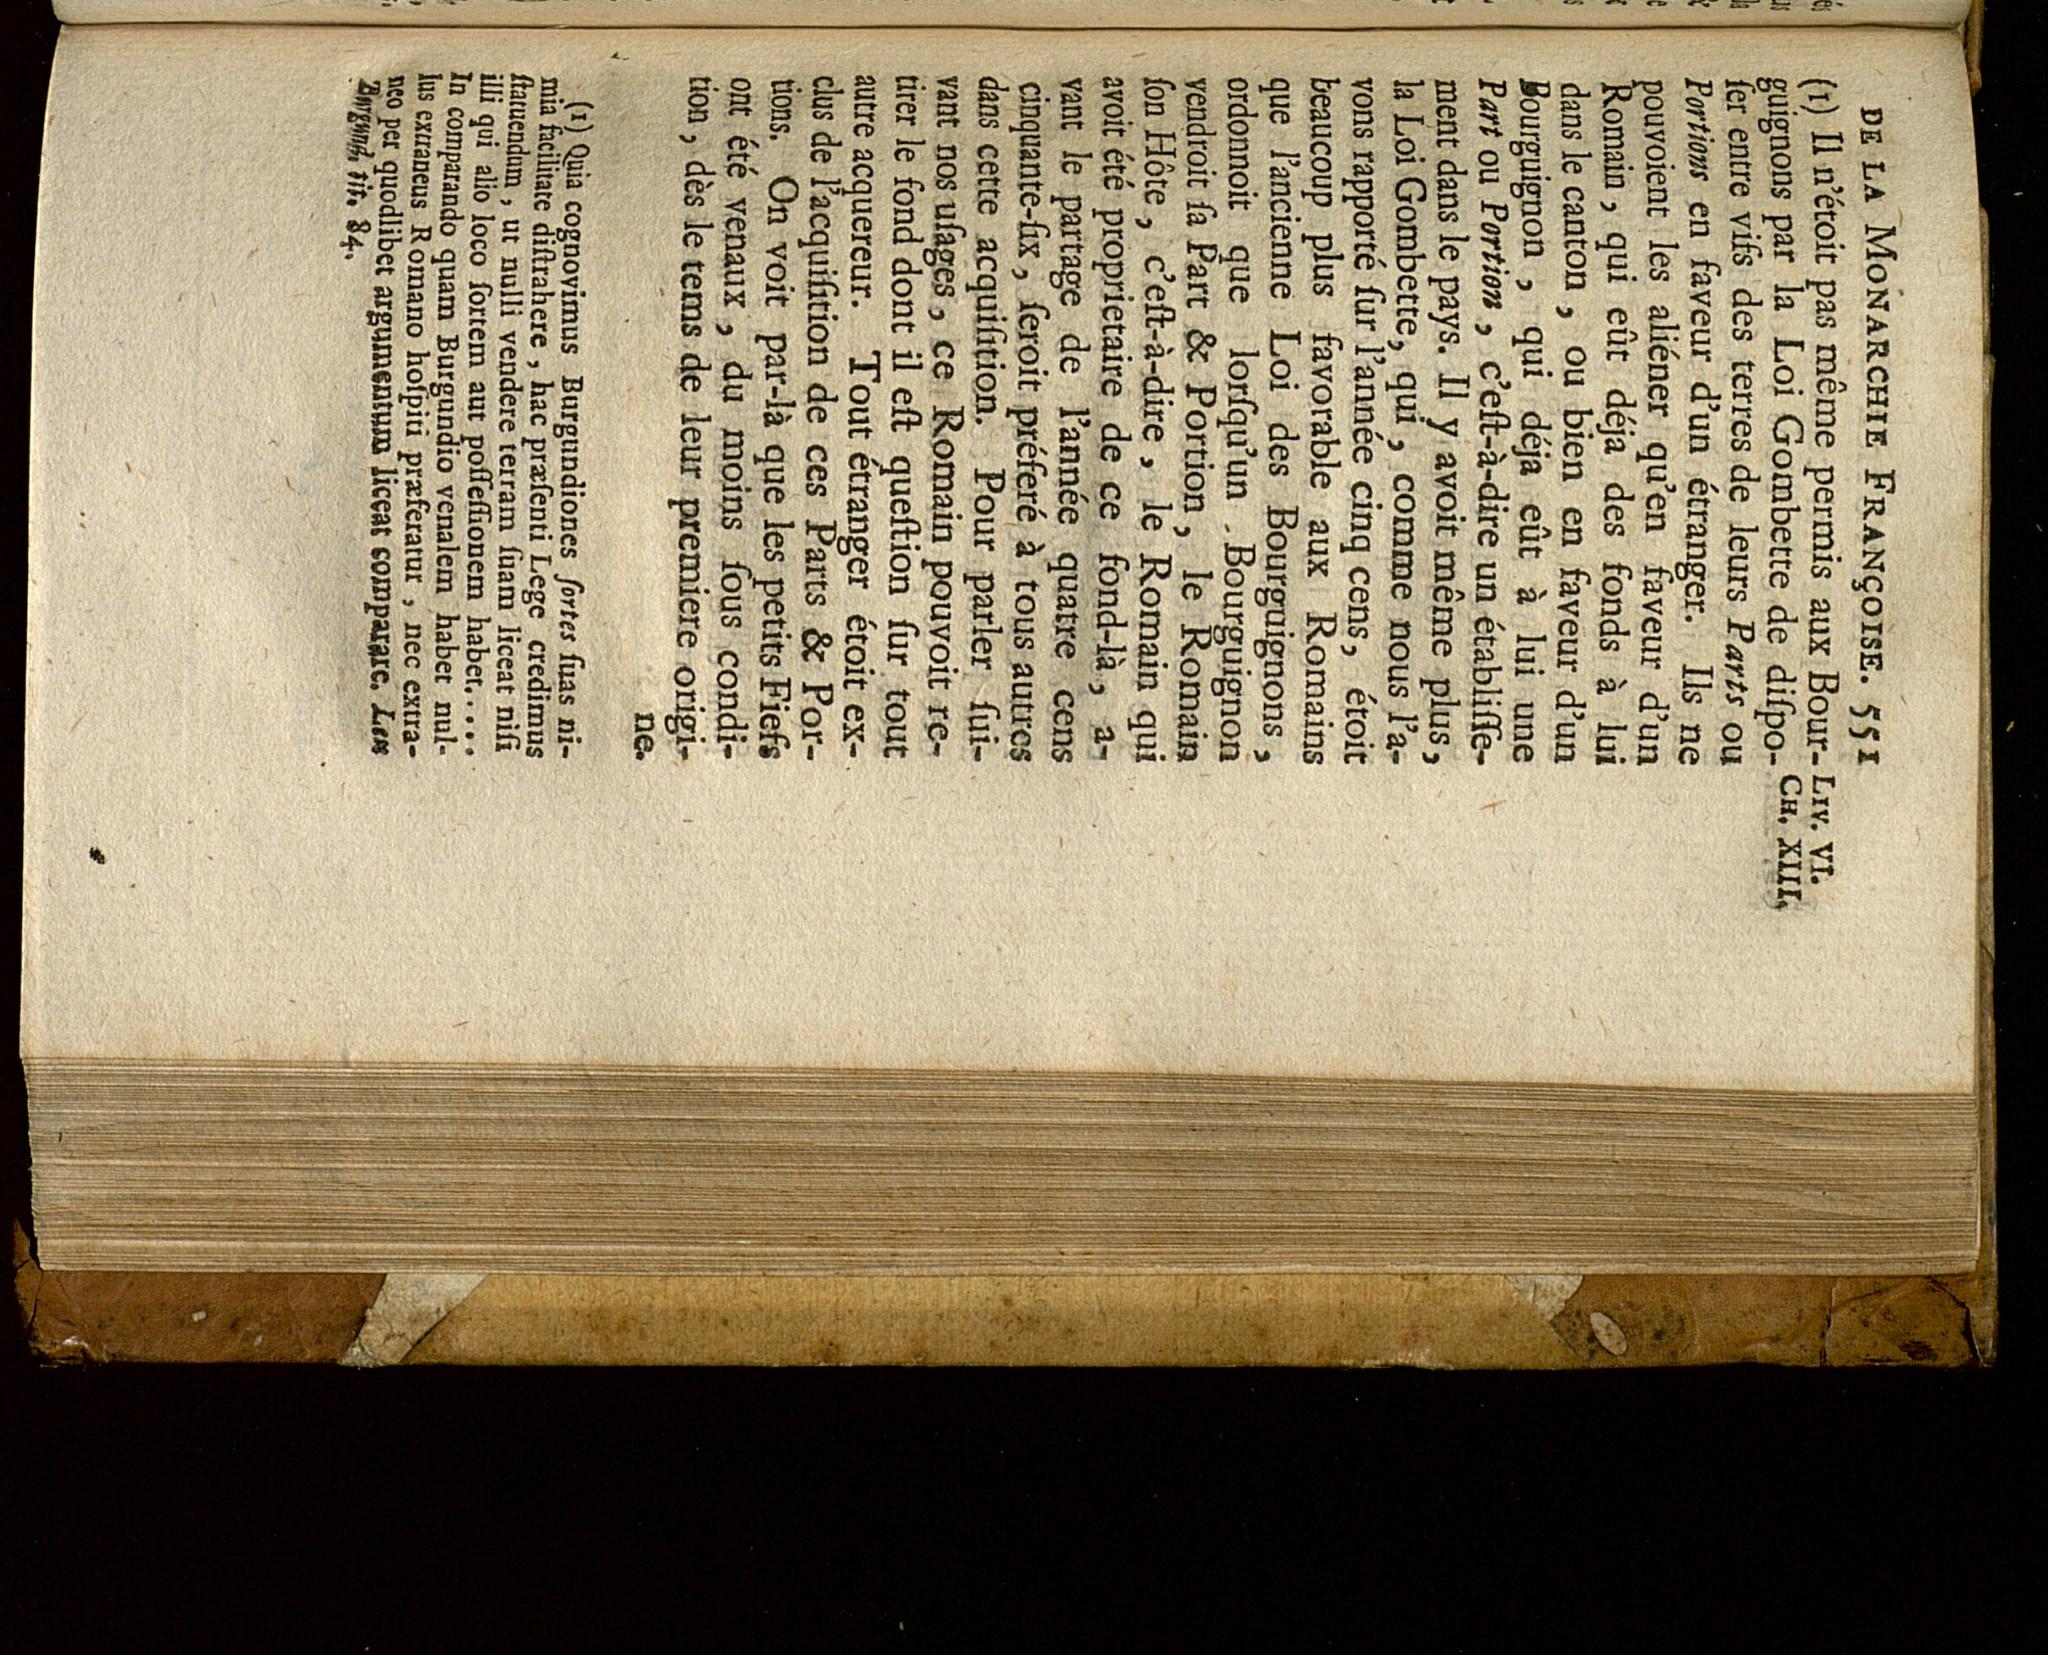 DE LA MONARCHIE FRANÇOISE. 551
(1) Il n'étoit pas même permis aux Bour-
LIV. VI.
CH. XIII.
guignons par la Loi Gombette de diſpo-
ſer entre vifs des terres de leurs Parts ou
Portions en faveur d'un étranger. Ils ne
pouvoient les aliéner qu'en faveur d'un
Romain, qui eût déja des fonds à lui
dans le canton, ou bien en faveur d'un
Bourguignon, qui déja eût à lui une
Part ou Portion, c'eſt-à-dire un établiſſe-
ment dans le pays. Il y avoit même plus,
la Loi Gombette, qui, comme nous l'a-
vons rapporté ſur l'année cinq cens, étoit
beaucoup plus favorable aux Romains
que l'ancienne Loi des Bourguignons,
ordonnoit que lorſqu'un Bourguignon
vendroit ſa Part & Portion, le Romain
ſon Hôte, c'eſt-à-dire, le Romain qui
avoit été proprietaire de ce fond-là, a-
vant le partage de l'année quatre cens
cinquante-ſix, ſeroit préferé à tous autres
dans cette acquiſition. Pour parler ſui-
vant nos uſages, ce Romain pouvoit re-
tirer le fond dont il eſt queſtion ſur tout
autre acquereur. Tout étranger étoit ex-
clus de l'acquiſition de ces Parts & Por-
tions. On voit par-là que les petits Fiefs
ont été venaux, du moins ſous condi-
tion, dès le tems de leur premiere origi-
ne.
(1) Quia cognovimus Burgundiones ſortes ſuas ni-
mia facilitate diſtrahere, hac præſenti Lege credimus
ſtatuendum, ut nulli vendere terram ſuam liceat niſi
illi qui alio loco ſortem aut poſſeſſionem habet. . . . .
In comparando quam Burgundio venalem habet nul-
lus extraneus Romano hoſpiti præferatur, nec extra-
neo per quodlibet argumentum liceat comparare. Lex
Burgund. tit. 84.